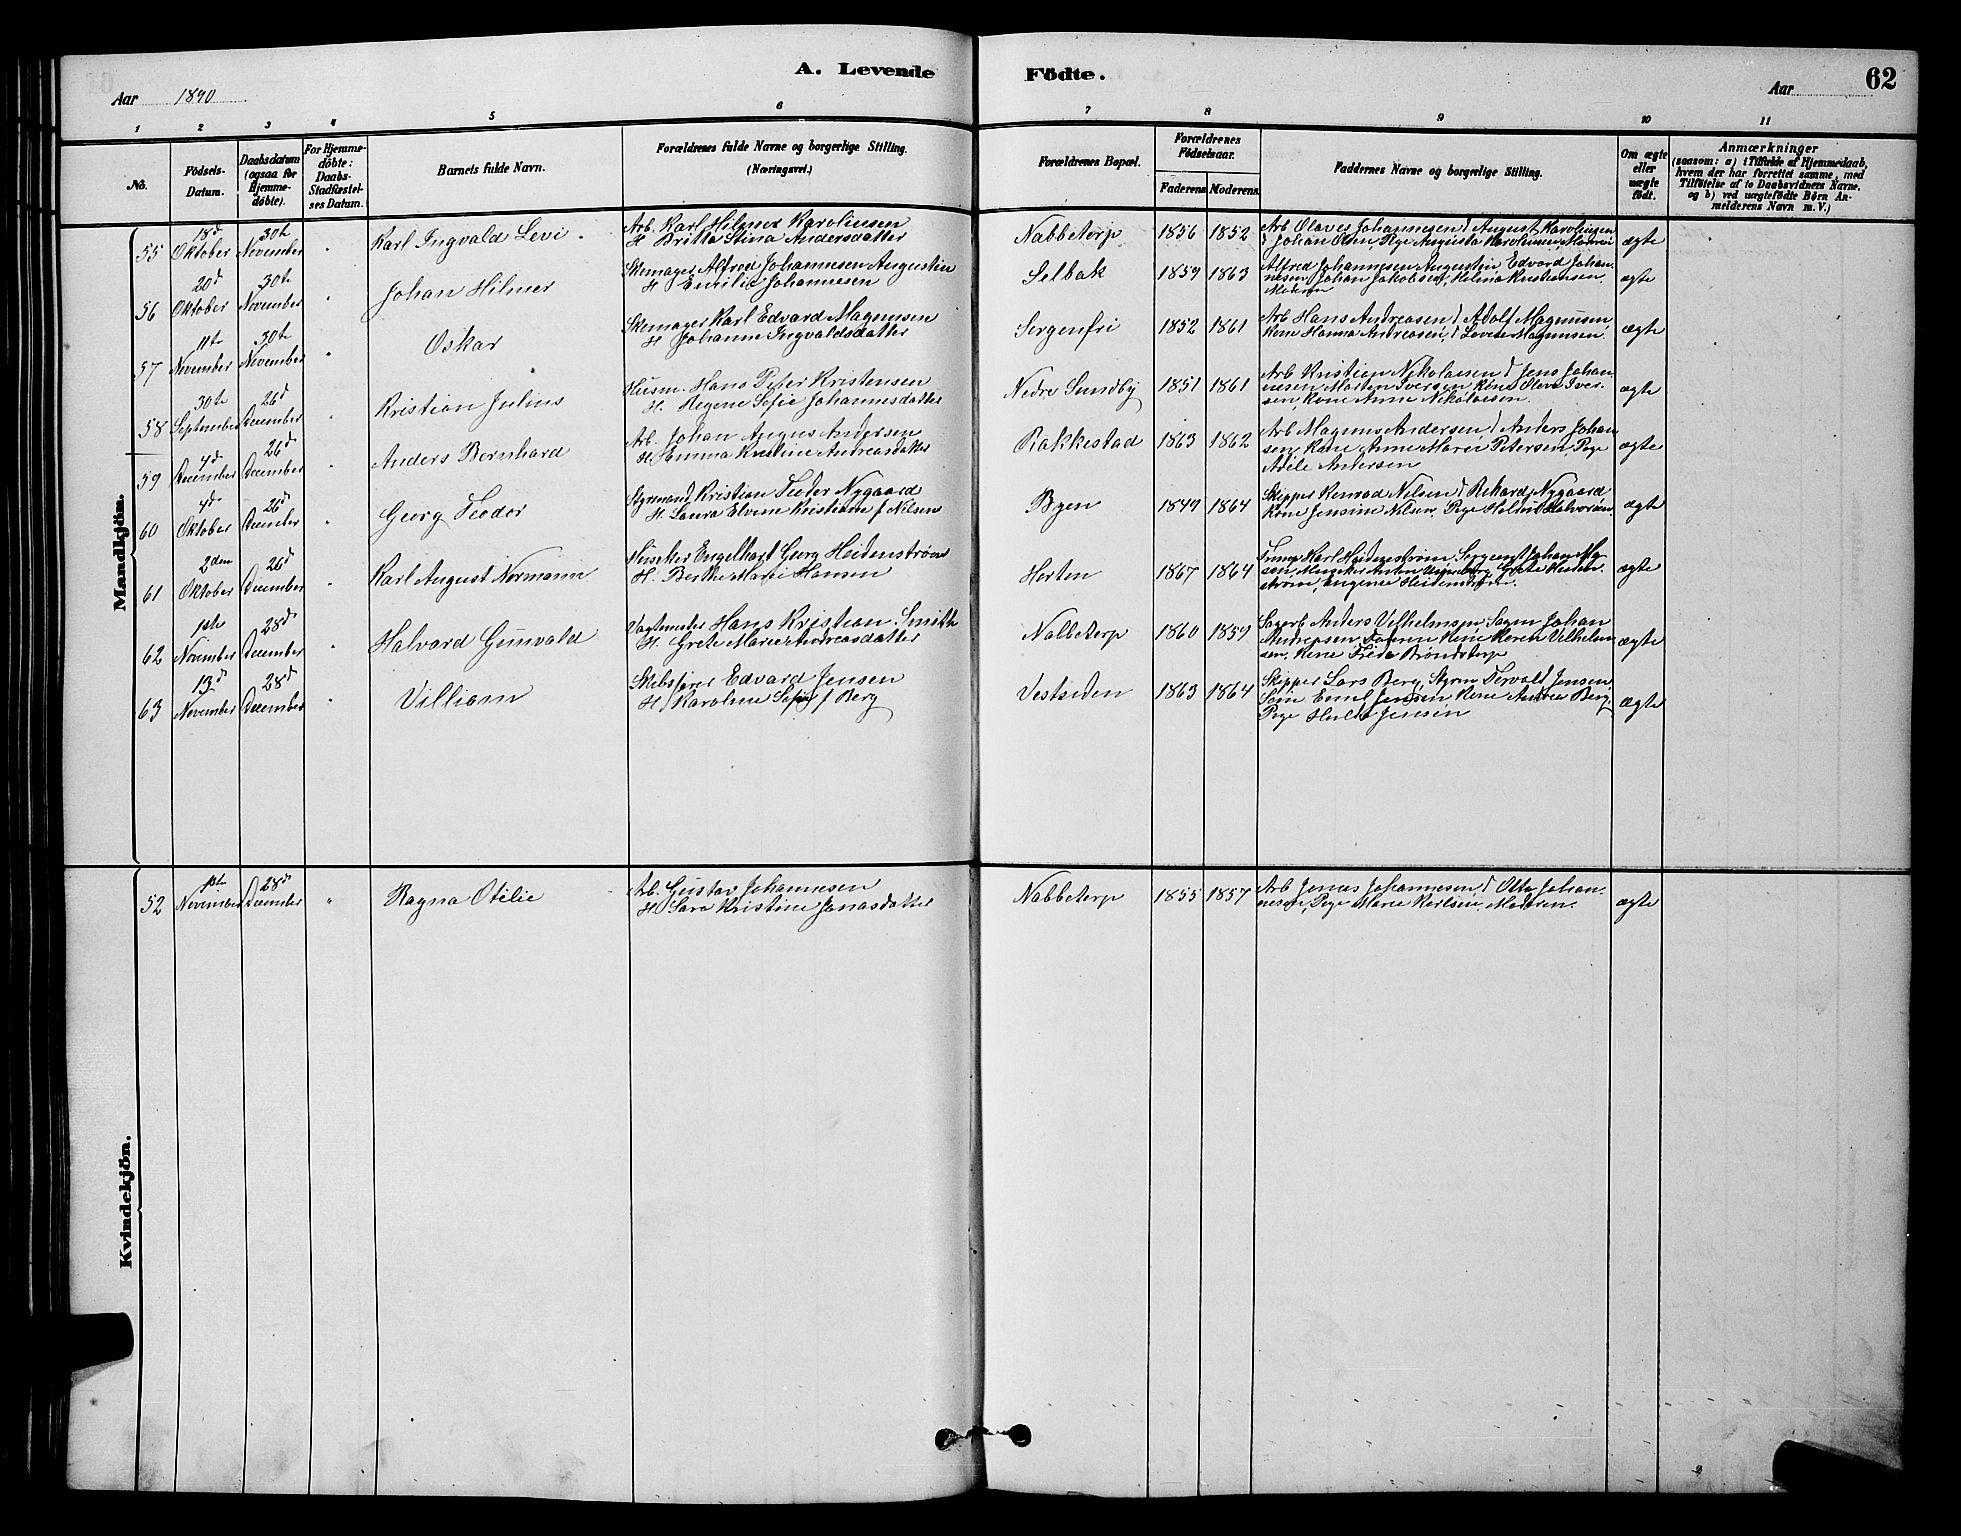 A. Levende Födte.
62
Aar 1890
Aar
1 2 3 4 5 6 7 8 9 10 11
No.
Födsels-Datum.
Daabsdatum (ogsaa for Hjemme-döbte).
For Hjemme-döbte: Daabs-Stadfæstel-ses Datum.
Barnets fulde Navn.
Forældrenes fulde Navne og borgerlige Stilling.
(Næringsvei.)
Forældrenes Bopæl.
Forældrenes Födselsaar.
Faderens Moderens
Faddernes Navne og borgerlige Stilling.
Om ægte eller uægte födt.
Anmærkninger
(saasom: a) i Tilfælde af Hjemmedaab,
hvem der har forrettet samme, med
Tilföielse af to Daabsvidners Navne,
og b) ved uægtefödte Börn An-
melderens Navn m.V.)
Mandkjön.
55 18d Oktober 30te November " Karl Ingvald Levi.
Arb. Karl Hilmer Karolinsen
H. Britta Stina Andersdatter
Nabbetorp 1856 1852
Arb Olaves Johannesen, August Karolinsen
Johan Olsen, Pige Augusta Karolinsen, Moderen
ægte
56 20d Oktober 30te November " Johan Hilmer
Skomager Alfred Johannesen Augustin
H. Emilie Johannesen
Selbak 1859 1863
Alfred Johannesen Augustin, Edvard Johan-
nesen, Johan Jakobsen, Helena Kristiansen,
Moderen
ægte
57 11te November 30te November " Oskar
Skomager Karl Edvard Magnusen
H. Johanne Ingvaldsdatter
Sorgenfri 1852 1861
Arb Hans Andreasen, Adolf Magnusen,
Kone Hanna Andreasen, Lovise Magnusen.
ægte
58 30te September 26d December " Kristian Julius
Husm. Hans Peter Kristensen
H. Regene Sofie Johannesdatter
Nedre Sundby 1851 1861
Arb Kristian Nikolaisen, Jens Johan-
nesen, Morten Iversen, Kone Olava Iver-
sen, Kone Anne Nikolaisen.
ægte
59 4d December 26d December " Anders Bernhard
Arb. Johan Angus Andersen
H. Emma Kristine Andreasdatter
Rakkestad 1863 1862
Arb Magnus Andersen, Anders Johan
sen, Kone Anne Marie Petersen, Pige
Adele Andersen
ægte
60 4d Oktober 26d December " Georg Teodor
Styrmand Kristian Teodor Nygaard
H. Laura Elvine Kristiane f Nilsen
Byen 1849 1864
Skipper Konrad Nilsen, Rikard Nygaard
Kone Jensine Nilsen, Pige Halvorsen
ægte
61 2den Oktober 26d December " Karl August Normann
Musiker Engelhart Georg Heidenstrøm
H. Berthe Marie Hansen
Horten 1867 1864
Karl Heidenstrøm, Sergent Johan
Musiker Anton Grete Heiden-
strøm, Eugenie Heidenstrøm.
ægte
62 1ste November 28d December " Halvard Gunvald
Vagtmester Hans Kristian Smith
H. Grete Marie Andreasdatter
Nabbetorp 1860 1859
Anders Vilhelmsen, Johan
Andreasen, Faderen, Kone Karen Vilhelm
sen, Kone Frida Brøndstorp
ægte
63 13d November 28d December " Villiam
Skibsfører Edvard Jensen
H. Karoline Sofie f Berg
Vestsiden 1863 1864
Skipper Lars Berg, Styrm Torvald Jensen
Emil Jensen, Kone Andrea Berg,
Pige Hulda Jensen
ægte
Kvindekjön.
52 1ste November 28d December " Ragna Otilie
Arb. Gustav Johannesen
H. Sara Kristine Jonasdatter
Nabbetorp 1855 1857
Arb Jonas Johannesen, Otto Johan-
nesen, Pige Marie Karlsen, Moderen.
ægte